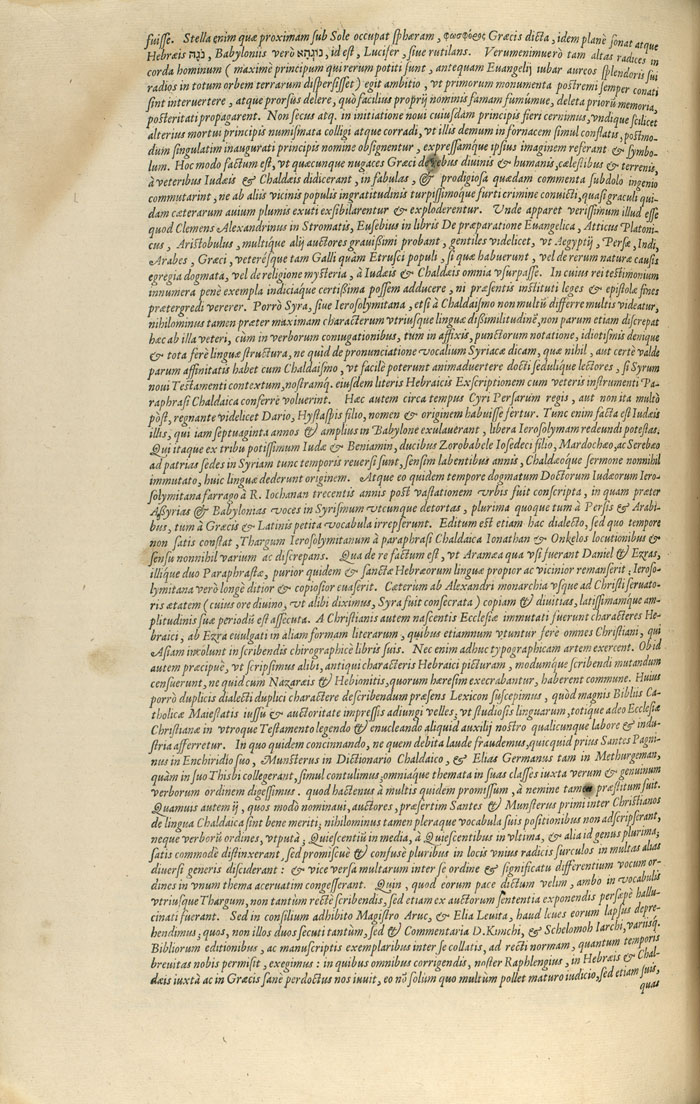 fuisse. Stella enim quæ proximam sub Sole occupat sphæram, φωσφόρος Græcis dicta, idem planè sonat atque
Hebræis נֹגַהּ, Babyloniis verò נוגהא, id est, Lucifer, siue rutilans. Verumenimuerò tam altas radices in
corda hominum (maximè principum qui rerum potiti sunt, antequam Euangelij iubar aureos splendoris sui
radios in totum orbem terrarum dispersisset) egit ambitio, vt primorum monumenta postremi semper conati
sint interuertere, atque prorsùs delere, quò faciliùs proprij nominis famam fumúmue, deleta priorũ memoria,
posteritati propagarent. Non secus atq. in initiatione noui cuiusdam principis fieri cernimus, vndique scilicet
alterius mortui principis numismata colligi atque corradi, vt illis demum in fornacem simul constatis, postmo-
dum singulatim inaugurati principis nomine obsignentur, expressamque ipsius imaginem referant & symbo-
lum. Hoc modo factum est, vt quæcunque nugaces Græci de rebus diuinis & humanis, cælestibus & terrenis,
à veteribus Iudæis & Chaldæis didicerant, in fabulas, & prodigiosa quædam commenta subdolo ingenio
commutarint, ne ab aliis vicinis populis ingratitudinis turpissimóque furti crimine conuicti, quasi graculi qui-
dam cæterarum auium plumis exuti exsibilarentur & exploderentur. Unde apparet verissimum illud esse
quod Clemens Alexandrinus in Stromatis, Eusebius in libris De præparatione Euangelica, Atticus Platoni-
cus, Aristobulus, multique alij auctores grauissimi probant, gentiles videlicet, vt Aegyptij, Persæ, Indi,
Arabes, Græci, veterésque tam Galli quàm Etrusci populi, si quæ habuerunt, vel de rerum naturæ causis
egregia dogmata, vel de religione mysteria, à Iudæis & Chaldæis omnia vsurpasse. In cuius rei testimonium
innumera penè exempla indiciaque certissima possem adducere, ni præsentis instituti leges & epistolæ fines
prætergredi vererer. Porrò Syra, siue Ierosolymitana, etsi à Chaldaismo non multũ differre multis videatur,
nihilominus tamen præter maximam characterum vtriusque linguæ dissimilitudinẽ, non parum etiam discrepat
hæc ab illa veteri, cùm in verborum coniugationibus, tum in affixis, punctorum notatione, idiotismis denique
& tota ferè linguæ structura, ne quid de pronunciatione vocalium Syriacæ dicam, quæ nihil, aut certè valdè
parum affinitatis habet cum Chaldaismo, vt facilè poterunt animaduertere docti sedulíque lectores, si Syrum
noui Testamenti contextum, nostrámq. eiusdem literis Hebraicis Exscriptionem cum veteris instrumenti Pa-
raphrasi Chaldaica conferre voluerint. Hæc autem circa tempus Cyri Persarum regis, aut non ita multò
pòst, regnante videlicet Dario, Hystaspis filio, nomen & originem habuisse fertur. Tunc enim facta est Iudæis
illis, qui iam septuaginta annos & ampliùs in Babylone exulauerant, libera Ierosolymam redeundi potestas.
Qui itaque ex tribu potissimum Iudæ & Beniamin, ducibus Zorobabele Iosedeci filio, Mardochæo, ac Serebæo
ad patrias sedes in Syriam tunc temporis reuersi sunt, sensim labentibus annis, Chaldæoque sermone nonnihil
immutato, huic linguæ dederunt originem. Atque eo quidem tempore dogmatum Doctorum Iudæorum Iero-
solymitana farrago à R. Iochanan trecentis annis post vastationem vrbis fuit conscripta, in quam præter
Assyrias & Babylonias voces in Syrismum vtcunque detortas, plurima quoque tum à Persis & Arabi-
bus, tum à Græcis & Latinis petita vocabula irrepserunt. Editum est etiam hac dialecto, sed quo tempore
non satis constat, Thargum Ierosolymitanum à paraphrasi Chaldaica Ionathan & Onkelos locutionibus &
sensu nonnihil varium ac discrepans. Qua de re factum est, vt Aramæa qua vsi fuerant Daniel & Ezras,
illique duo Paraphrastæ, purior quidem & sanctæ Hebræorum linguæ propior ac vicinior remanserit, Ieroso-
lymitana verò longè ditior & copiosior euaserit. Cæterùm ab Alexandri monarchia vsque ad Christi seruato-
ris ætatem (cuius ore diuino, vt alibi diximus, Syra fuit consecrata) copiam & diuitias, latissimámque am-
plitudinis suæ periodũ est assecuta. A Christianis autem nascentis Ecclesiæ immutati fuerunt characteres He-
braici, ab Ezra euulgati in aliam formam literarum, quibus etiamnum vtuntur ferè omnes Christiani, qui
Asiam incolunt in scribendis chirographicè libris suis. Nec enim adhuc typographicam artem exercent. Ob id
autem præcipuè, vt scripsimus alibi, antiqui characteris Hebraici picturam, modumque scribendi mutandum
censuerunt, ne quid cum Nazaræis & Hebionitis, quorum hæresim execrabantur, haberent commune. Huius
porrò duplicis dialecti duplici charactere describendum præsens Lexicon suscepimus, quòd magnis Bibliis Ca-
tholicæ Maiestatis iussu & auctoritate impressis adiungi velles, vt studiosis linguarum, totique adeo Ecclesiæ
Christianæ in vtroque Testamento legendo & enucleando aliquid auxilij nostro qualicunque labore & indu-
stria afferretur. In quo quidem concinnando, ne quem debita laude fraudemus, quicquid priùs Santes Pagni-
nus in Enchiridio suo, Munsterus in Dictionario Chaldaico, & Elias Germanus tam in Methurgeman,
quàm in suo Thisbi collegerant, simul contulimus, omniáque themata in suas classes iuxta verum & genuinum
verborum ordinem digessimus. quod hactenus à multis quidem promissum, à nemine tamen præstitum fuit.
Quamuis autem ij, quos modò nominaui, auctores, præsertim Santes & Munsterus primi inter Christianos
de lingua Chaldaica sint bene meriti; nihilominus tamen pleraque vocabula suis positionibus non adscripserant,
neque verborũ ordines, vtputà; Quiescentiũ in media, à Quiescentibus in vltima, & alia id genus plurima;
satis commodè distinxerant, sed promiscuè & confusè pluribus in locis vnius radicis surculos in multas alias
diuersi generis disciderant: & vice versa multarum inter se ordine & significatu differentium vocum or-
dines in vnum thema aceruatim congesserant. Quin, quod eorum pace dictum velim, ambo in vocabulis
vtriusque Thargum, non tantùm rectè scribendis, sed etiam ex auctorum sententia exponendis persæpè hallu-
cinati fuerant. Sed in consilium adhibito Magistro Aruc, & Elia Leuita, haud leues eorum lapsus depre-
hendimus; quos, non illos duos secuti tantùm, sed & Commentaria D. Kimchi, & Schelomoh Iarchi, variisq.
Bibliorum editionibus, ac manuscriptis exemplaribus inter se collatis, ad recti normam, quantum temporis
breuitas nobis permisit, exegimus: in quibus omnibus corrigendis, noster Raphlengius, in Hebræis & Chal-
dæis iuxtà ac in Græcis sanè perdoctus nos iuuit, eo nõ solùm quo multùm pollet maturo iudicio, sed etiam suis,
quas